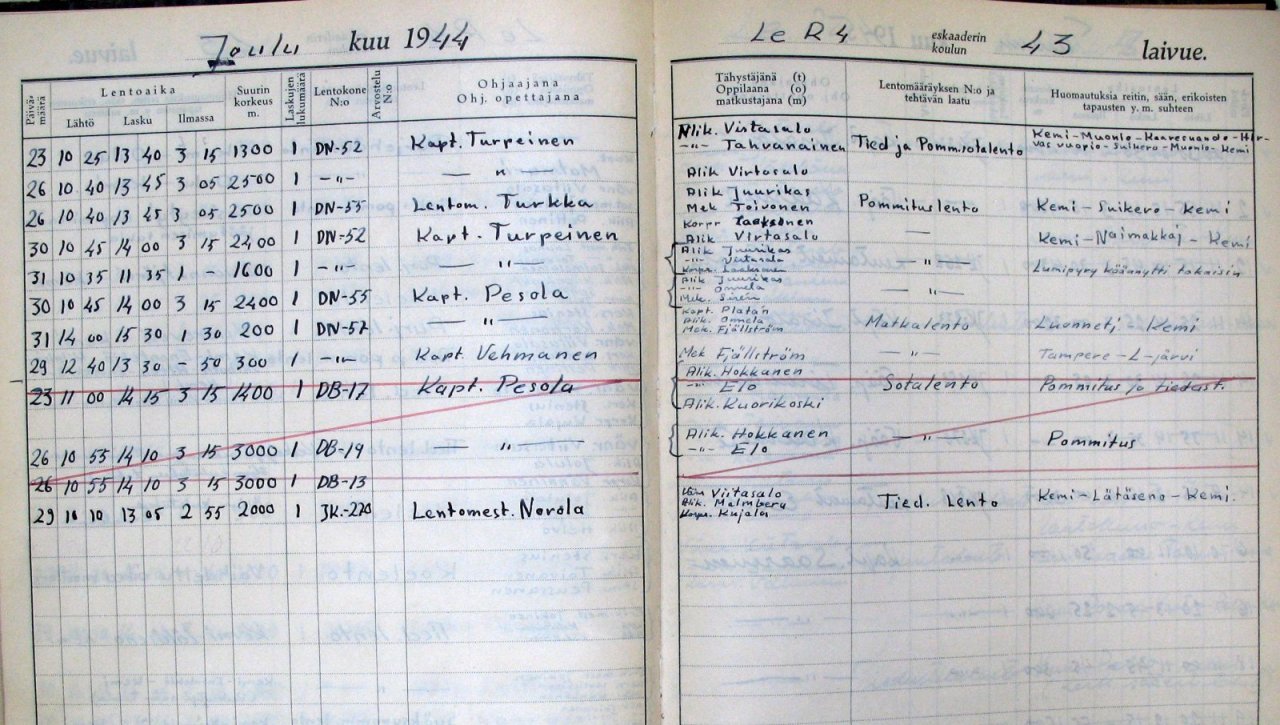 Joulu kuu 1944
Le R 4 eskaaderin koulun 43 laivue.
Päivä-määrä Lentoaika Suurin korkeus m. Laskujen lukumäärä Lentokone N:o Arvostelu N:o Ohjaajana Ohj. opettajana
Lähtö Lasku Ilmassa
Tähystäjänä (t) Oppilaana (o) matkustajana (m) Lentomääräyksen N:o ja tehtävän laatu Huomautuksia reitin, sään, erikoisten tapausten y. m. suhteen
23 10 25 13 40 3 15 1300 1 DN-52 Kapt. Turpeinen
26 10 40 13 45 3 05 2500 1 -"- — " —
26 10 40 13 45 3 05 2500 1 DN-55 Lentom. Turkka
30 10 45 14 00 3 15 2400 1 DN-52 Kapt. Turpeinen
31 10 35 11 35 1 - 1600 1 -"- — " —
30 10 45 14 00 3 15 2400 1 DN-55 Kapt. Pesola
31 14 00 15 30 1 30 200 1 DN-57 — " —
29 12 40 13 30 - 50 300 1 -"- Kapt. Vehmanen
23 11 00 14 15 3 15 1400 1 DB-17 Kapt. Pesola
26 10 55 14 10 3 15 3000 1 DB-19 — " —
26 10 55 14 10 3 15 3000 1 DB-13
29 10 10 13 05 2 55 2000 1 JK-220 Lentomest. Norola
Alik. Virtasalo
-"- Tahvanainen Tied ja Pommisotalento Kemi-Muonio-Kaaresuando-
Suikero-Muonio-Kemi
Alik Virtasalo
Alik Juurikas
Mek Toivonen Pommituslento Kemi-Suikero-Kemi
Korpr Laaksonen
Alik Virtasalo — Kemi-Naimakkaj-Kemi
Alik Juurikas
-"- Virtasalo — " — Lumipyry käännytti takaisin
Korpr. Laaksonen
Alik Juurikas
-"- Onnela — " —
Mek. Siren
Kapt. Platan
Alik. Onnela Matkalento Luonnetj. Kemi
Mek. Fjällström
Mek Fjällström — " — Tampere-L-järvi
Alik. Hokkanen
-"- Elo Sotalento Pommitus ja tiedust.
Alik. Kuorikoski
Alik. Hokkanen — " — Pommitus
-"- Elo
Viitasalo
Alik. Malmberg Tied. Lento Kemi-Lätäseno-Kemi
Korpr. Kujala